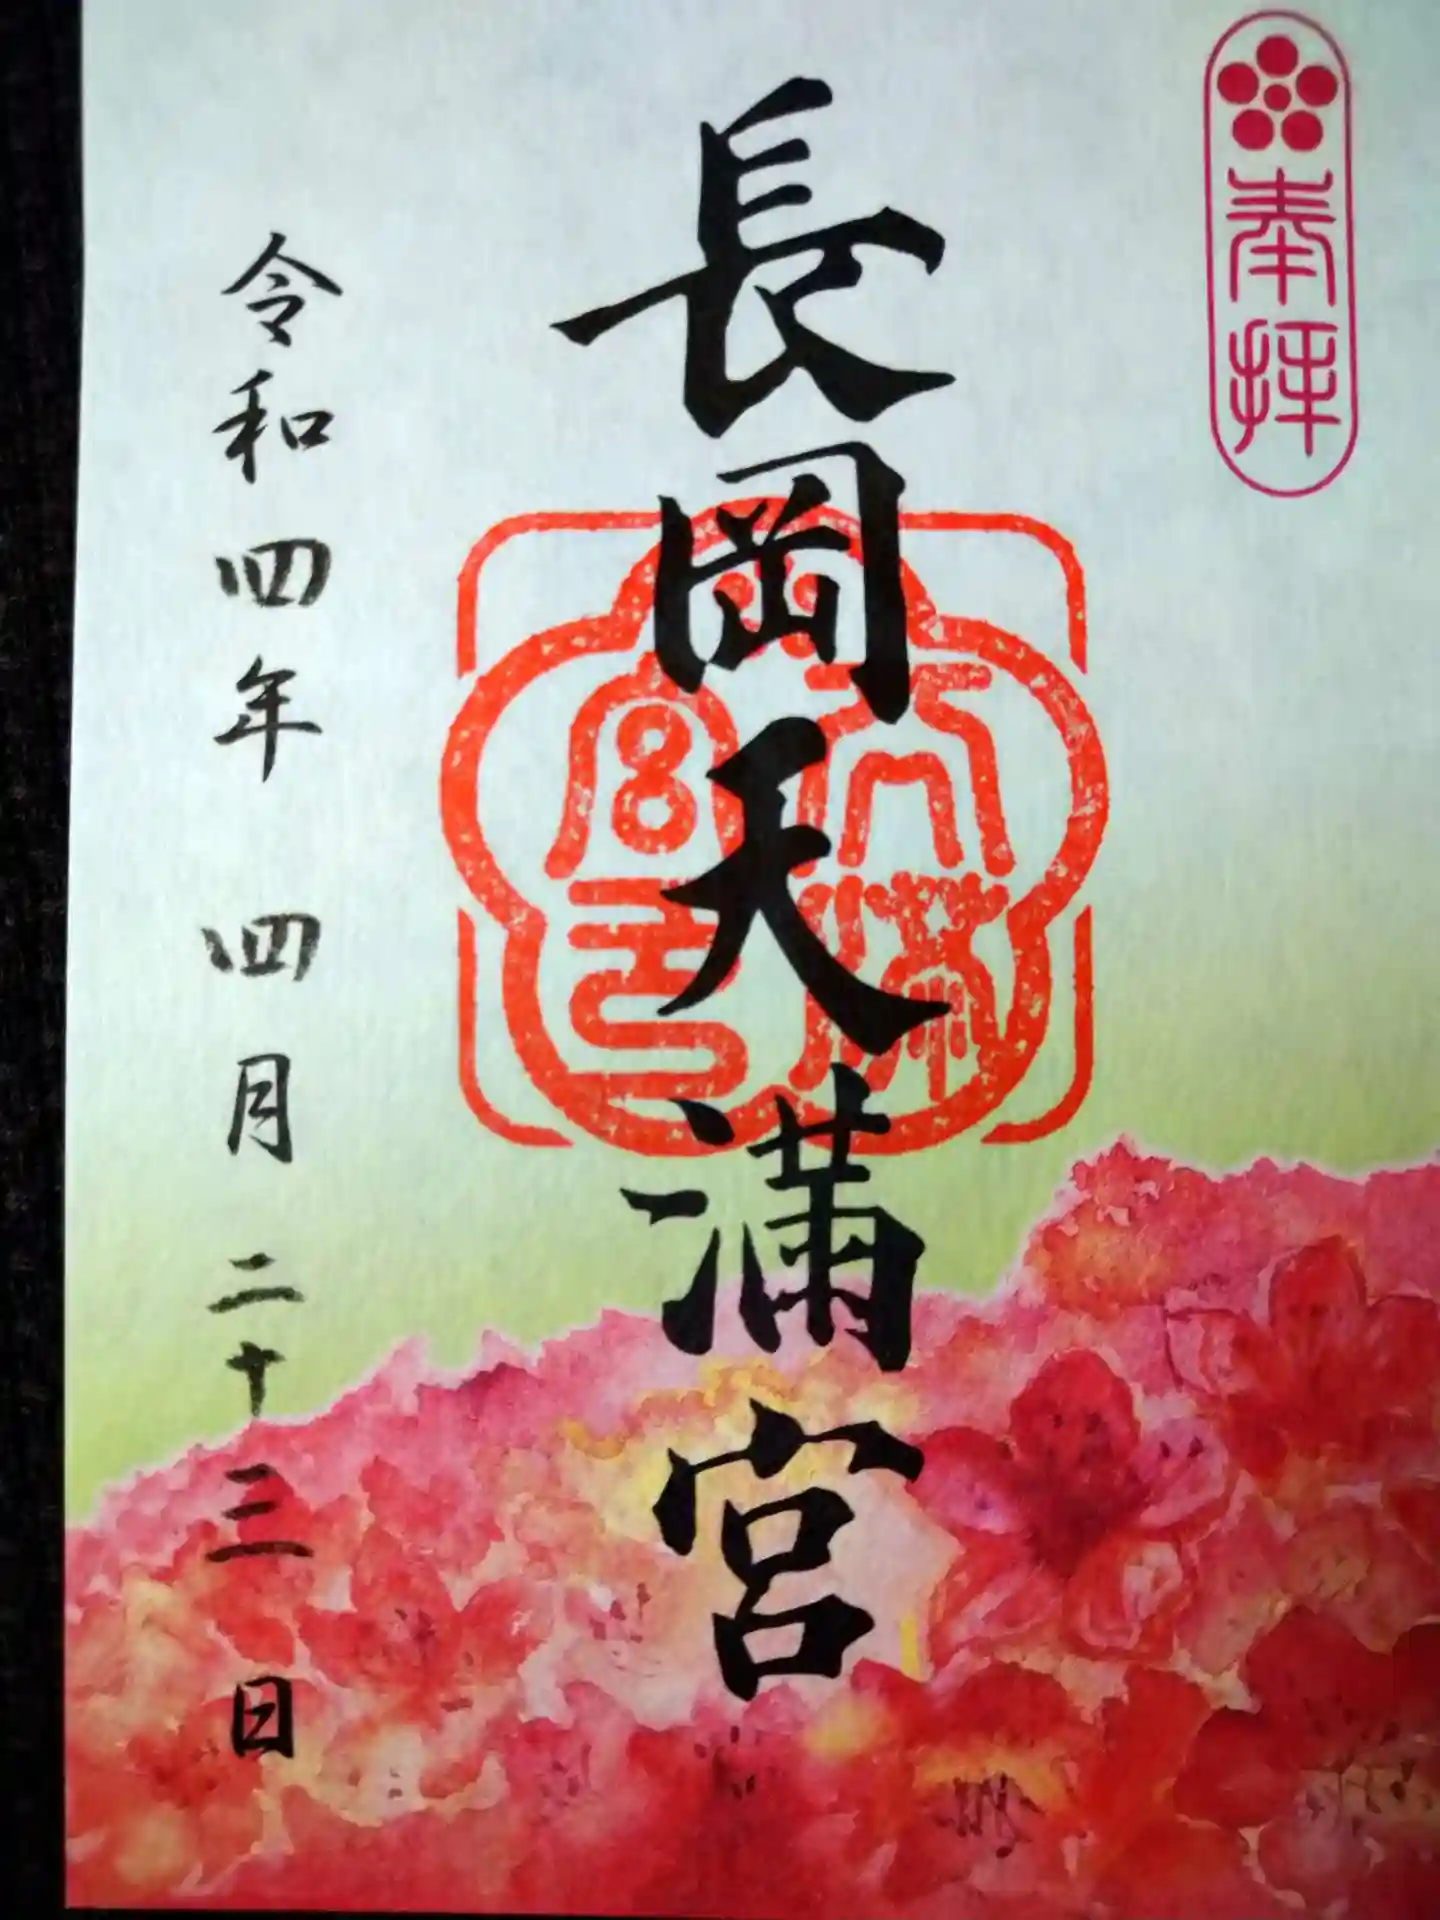 奉拝
長岡天満宮
天満宮印
令和四年 四月二十三日